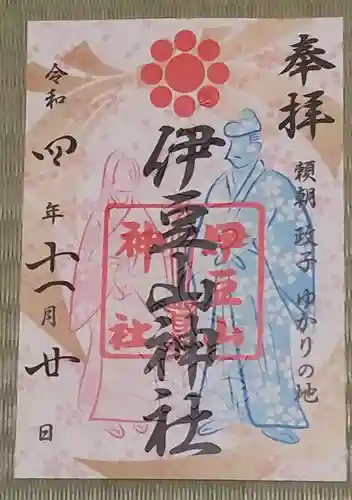 奉拝
頼朝 政子 ゆかりの地
伊豆山神社
伊豆山
神社
令和四年十一月廿日